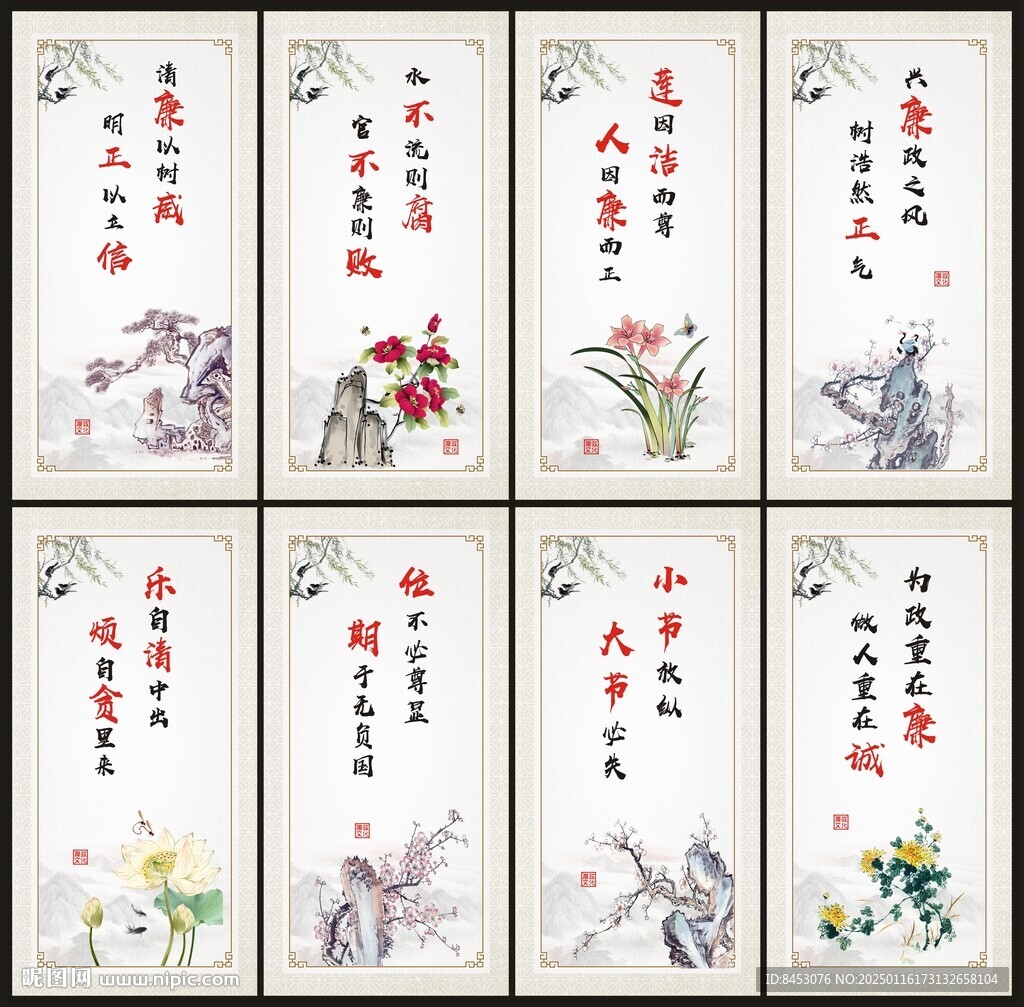 清廉以树威
明正以立信
廉政
文化
水不流则腐
官不廉则败
廉政
文化
莲因洁而尊
人因廉而正
廉政
文化
兴廉政之风
树浩然正气
廉政
文化
乐自清中出
烦自贪里来
廉政
文化
位不必尊显
期于无负国
廉政
文化
小节放纵
大节必失
廉政
文化
为政重在廉
做人重在诚
廉政
文化
昵图网 www.nipic.com
ID:8453076 NO:20250116173132658104